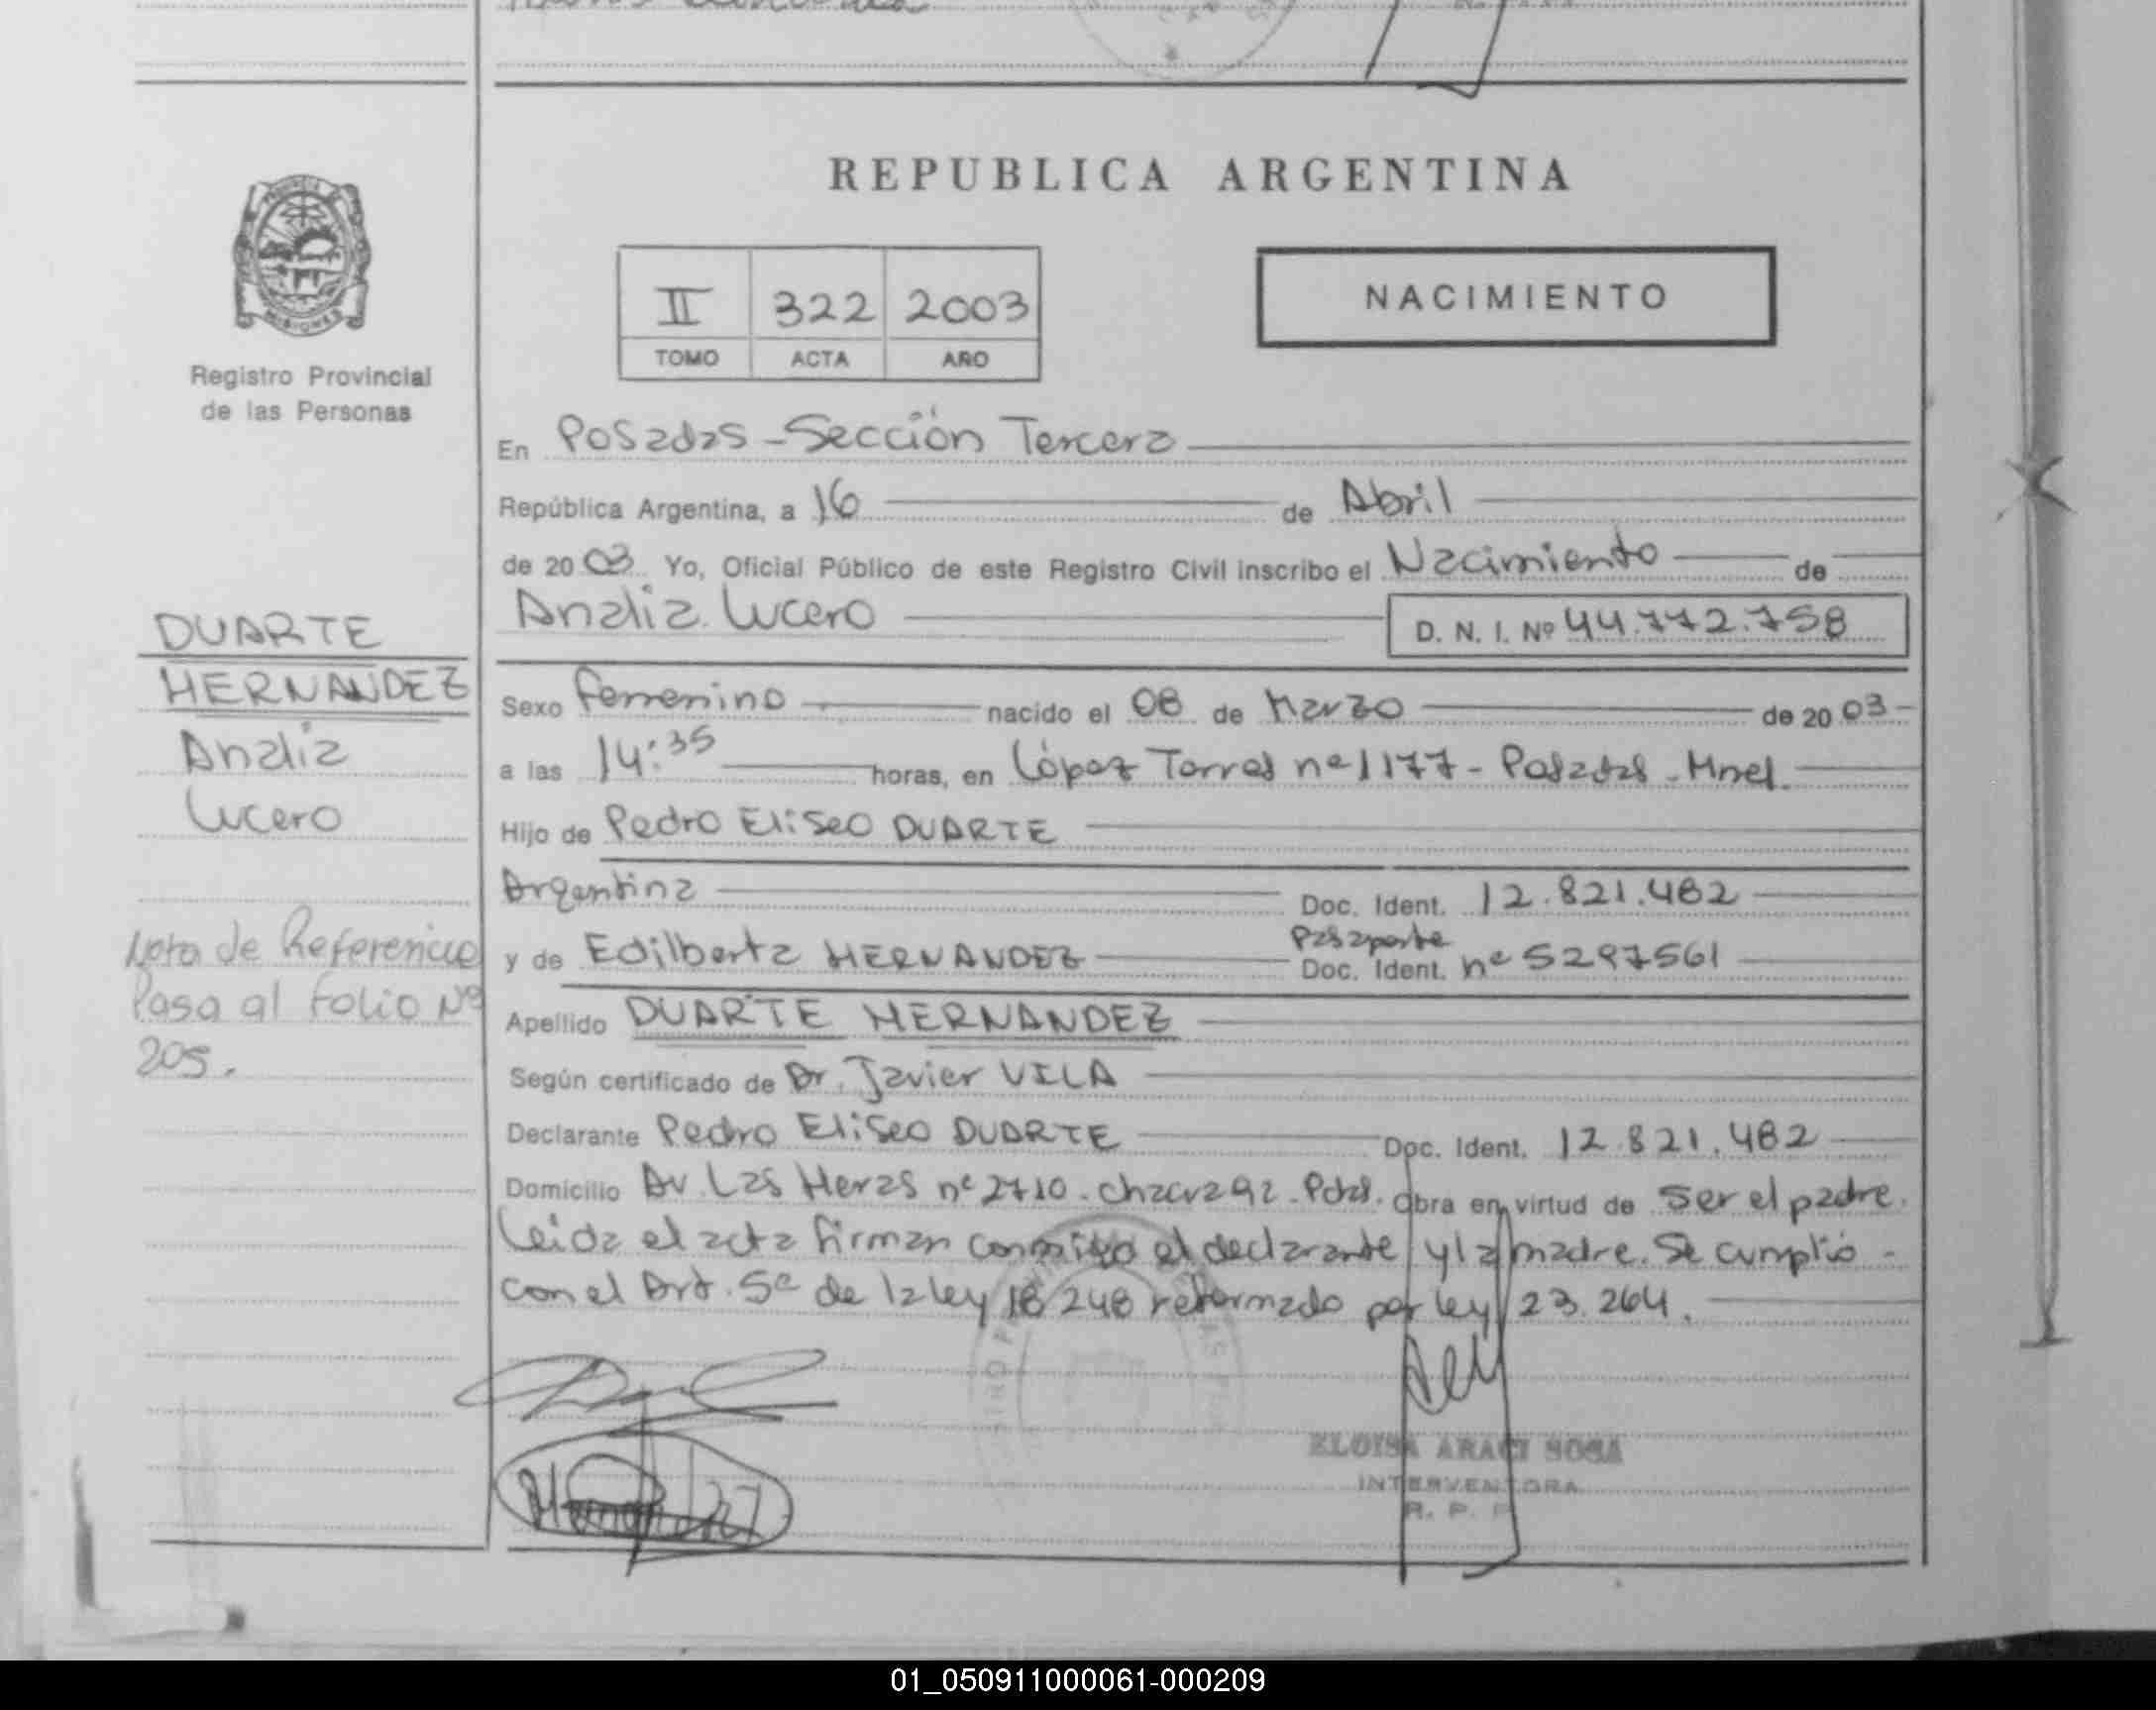 REPUBLICA ARGENTINA
PROVINCIA
MISIONES
Registro Provincial
de las Personas
II 322 2003
TOMO ACTA AÑO
NACIMIENTO
En Posadas - Sección Tercera
República Argentina, a 16 de Abril
de 2003 Yo, Oficial Público de este Registro Civil inscribo el Nacimiento de
Analia Lucero D. N. I. Nº 44.772.758
DUARTE
HERNANDEZ
Analia
Lucero
Sexo Femenino nacido el 08 de Marzo de 2003
a las 14:35 horas, en López Torres nº 1177 - Posadas - Mnes.
Hijo de Pedro Eliseo DUARTE
Argentina Doc. Ident. 12.821.482
y de Edilberta HERNANDEZ Pasaporte Doc. Ident. nº 5297561
Nota de Referencia
Pasa al Folio Nº
205.
Apellido DUARTE HERNANDEZ
Según certificado de Dr. Javier VILA
Declarante Pedro Eliseo DUARTE Doc. Ident. 12.821.482
Domicilio Av. Las Heras nº 2710 - chacra 92 - Pdas. Obra en virtud de ser el padre.
Leida el acta firman conmigo el declarante y la madre. Se cumplió -
con el Art. 5º de la ley 18248 reformado por ley 23.264.
ELOISA ARACI SOSA
INTERVENTORA
R. P. P
01_050911000061-000209